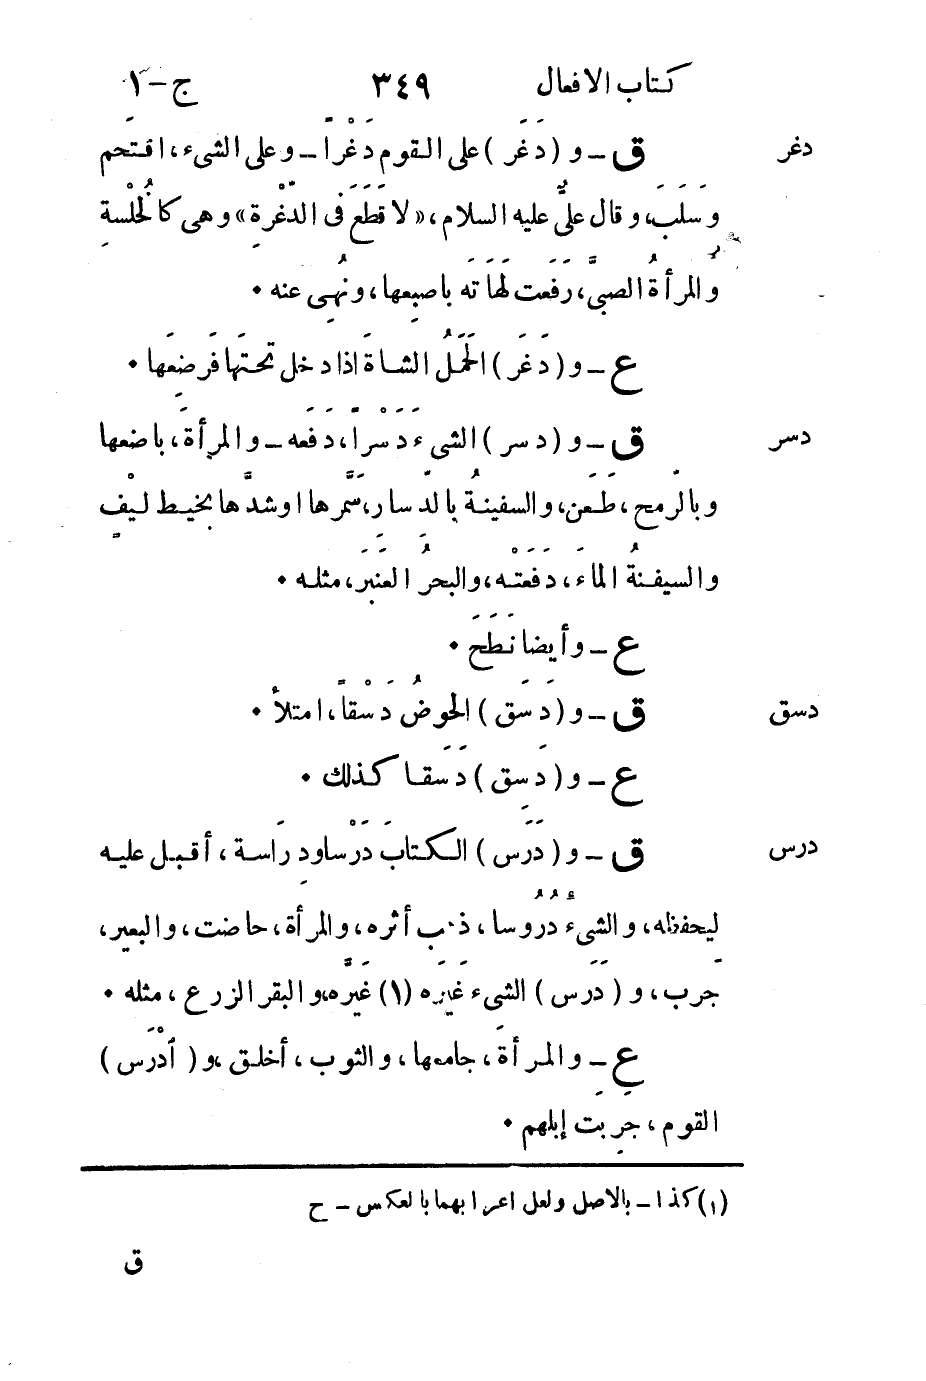 كتاب الافعال ٣٤٩ ج-١
دغر ق - و (دَغَر) على القوم دَغْراً - وعلى الشىء، اقتحم
وسَلَبَ، وقال علىٌّ عليه السلام، «لا قَطَعَ فى الدّغْرِة» وهى كالُخلْسِة
والمرأةُ الصبىَّ، رفَعَت لَهَاتَه باصبِعها، ونُهِى عنه •
ع - و (دَغَر) الحَمَلُ الشاةَ اذا دخل تحتَها فَرضِعَها •
دسر ق - و (دسر) الشىء دَسْراً، دَفَعه - والمرأةَ، باضعها
وبالرمح، طَعَن، والسفينةُ بالدّسار، سَمَّرها اوشدَّها بخيط ليْفٍ
والسيفنةُ الماءَ، دَفَعَتْه، والبحرُ العنَبَر، مثله •
ع - وأيضا نَطَحَ •
دسق ق - و (دَسَق) الحوضُ دَسْقاً، امتلأ •
ع - و (دَسِق) دَسَقا كذلك •
درس ق - و (دَرَس) الكتابَ دَرْسا ودِرَاسة، أقبل عليه
ليحفظه، والشىءُ دُرُوسا، ذهب أثره، والمرأة، حاضت، والبعير،
جرِب، و (دَرَس) الشىء غيَرَه (١) غيَّره، والبقر الزرع، مثله •
ع - والمرأةَ، جامعها، والثوب، أخلق، و (أدْرَس)
القوم، جرِبت إبِلهم •
(١) كذا - بالاصل ولعل اعرابهما بالعكس - ح
ق